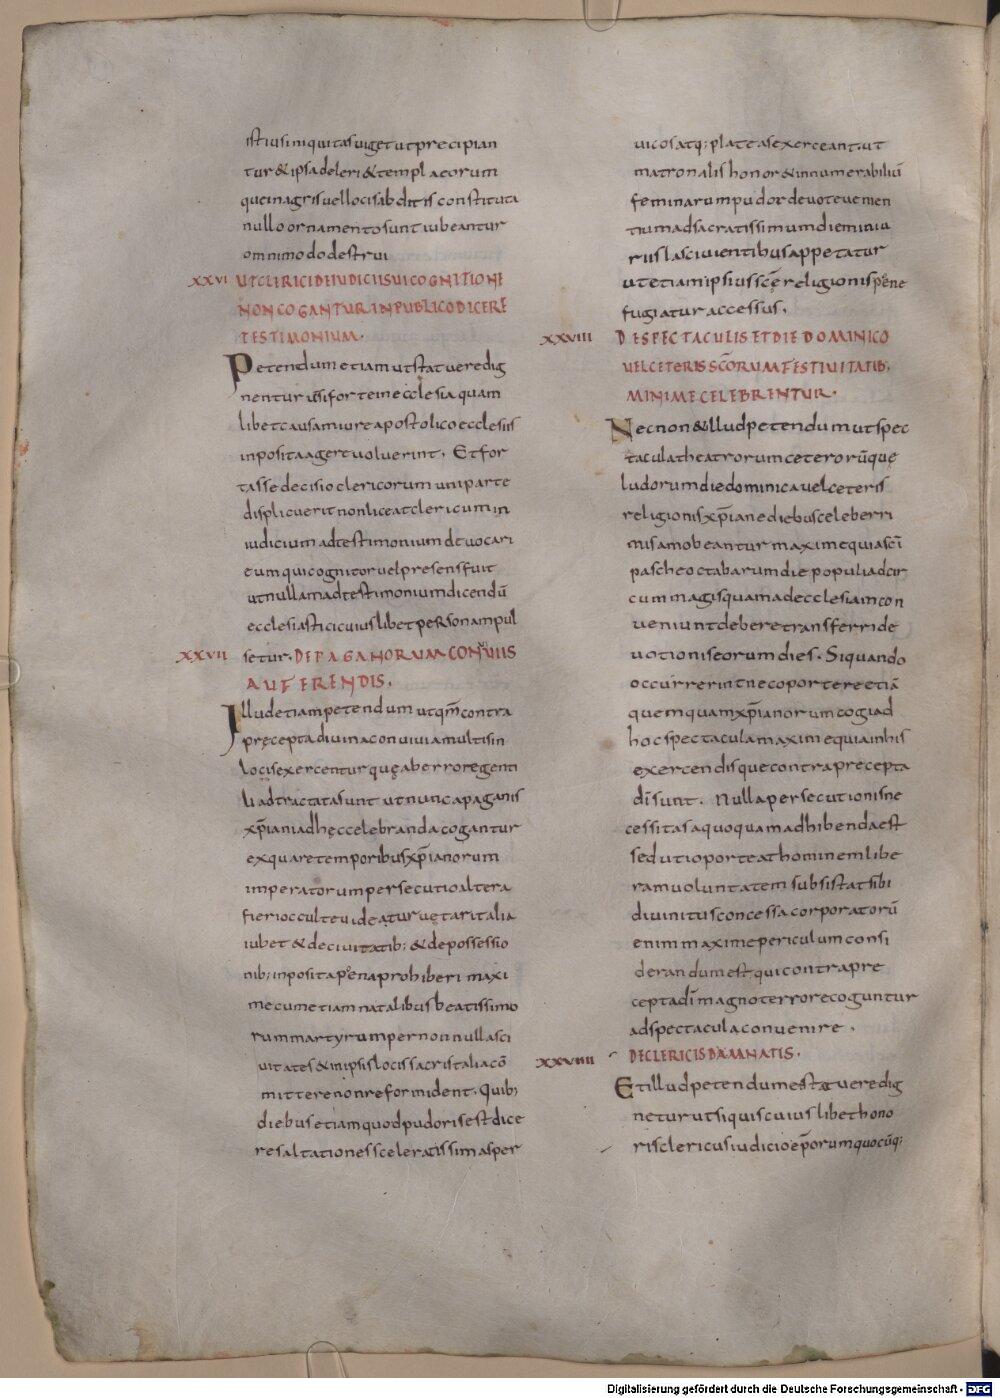 istius iniquitas uiget ut precipian
tur & ipsa deleri & templa eorum
que in agris uel locis abditis constituta
nullo ornamento sunt iubeantur
omnimodo destrui
XXVI UT CLERICI DE IUDICII SUI COGNITIONE
NON COGANTUR IN PUBLICO DICERE
TESTIMONIUM.
Petendum etiam ut statuere dig
nentur ut si forte in ecclesia quam
libet causam iure apostolico ecclesiis
inposita agere uoluerint. Et for
tasse decisio clericorum uni parte
displicuerit non liceat clericum in
iudicium ad testimonium deuocari
eum qui cognitor uel presens fuit
ut nulla ad testimonium dicendū
ecclesiastici cuiuslibet persona pul
XXVII setur. DE PAGANORUM CONVIUIIS
AUFERENDIS.
Illud etiam petendum ut qm̄ contra
pręcepta diuina conuiuia multis in
locis exercentur quę ab errore genti
li adtracta sunt ut nunc a paganis
xp̄iani ad hęc celebranda cogantur
ex qua re temporibus xp̄ianorum
imperatorum persecutio altera
fieri occulte uideatur uętari talia
iubet & de ciuitatib; & de possessio
nib; inposita pena prohiberi maxi
me cum etiam natalibus beatissimo
rum martyrum per nonnullas ci
uitates & in ipsis locis sacris talia cō
mittere non reformident. Quib;
diebus etiam quod pudoris est dice
re saltationes sceleratissimas per
uicos atq; plateas exerceant. ut
matronalis honor & innumerabiliū
feminarum pudor deuote uenien
tium ad sacratissimum diem iniu
riis lasciuientibus appetatur
ut etiam ipsius sc̄ę religionis pene
fugiatur accessus.
XXVIII DE SPECTACULIS ET DIE DOMINICO
UEL CETERIS SC̄ORUM FESTIUITATIB;
MINIME CELEBRENTUR.
Necnon & illud petendum ut spec
tacula theatrorum ceterorūque
ludorum die dominica uel ceteris
religionis xp̄iane diebus celeberri
mis amobeantur maxime quia sc̄i
pasche octabarum die populi ad cir
cum magis quam ad ecclesiam con
ueniunt debere transferri de
uotionis eorum dies. Si quando
occurrerint nec oportere etiā
quemquam xp̄ianorum cogi ad
hoc spectacula maxime quia in his
exercendis que contra precepta
dī sunt. Nulla persecutionis ne
cessitas a quoquam adhibenda est
sed uti oporteat hominem libe
ram uoluntatem subsistat sibi
diuinitus concessa corporatorū
enim maxime periculum consi
derandum est qui contra pre
cepta dī magno terrore coguntur
ad spectacula conuenire.
XXVIIII DE CLERICIS DAMNATIS.
Et illud petendum est statuere dig
netur ut si quis cuiuslibet hono
ris clericus iudicio ep̄orum quocūq;
Digitalisierung gefördert durch die Deutsche Forschungsgemeinschaft - DFG